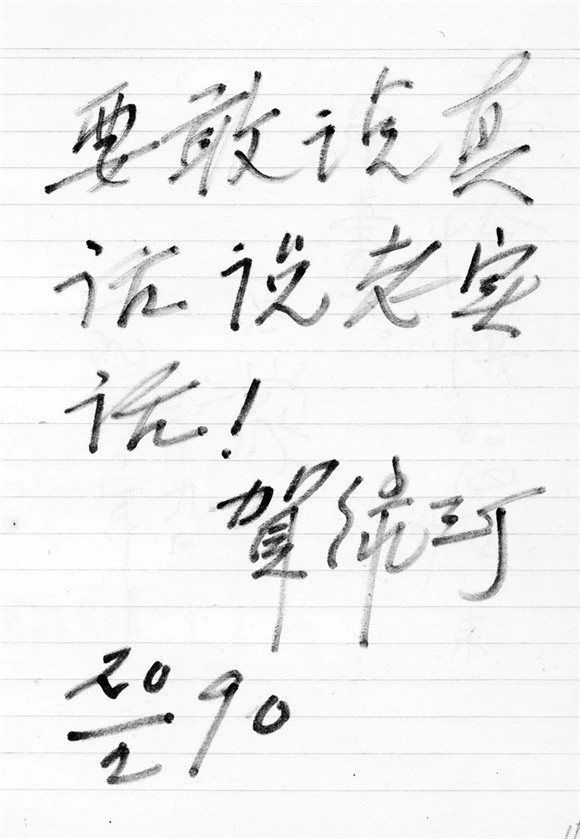 要敢说真
话说老实
话!
賀绿汀
20/2 90